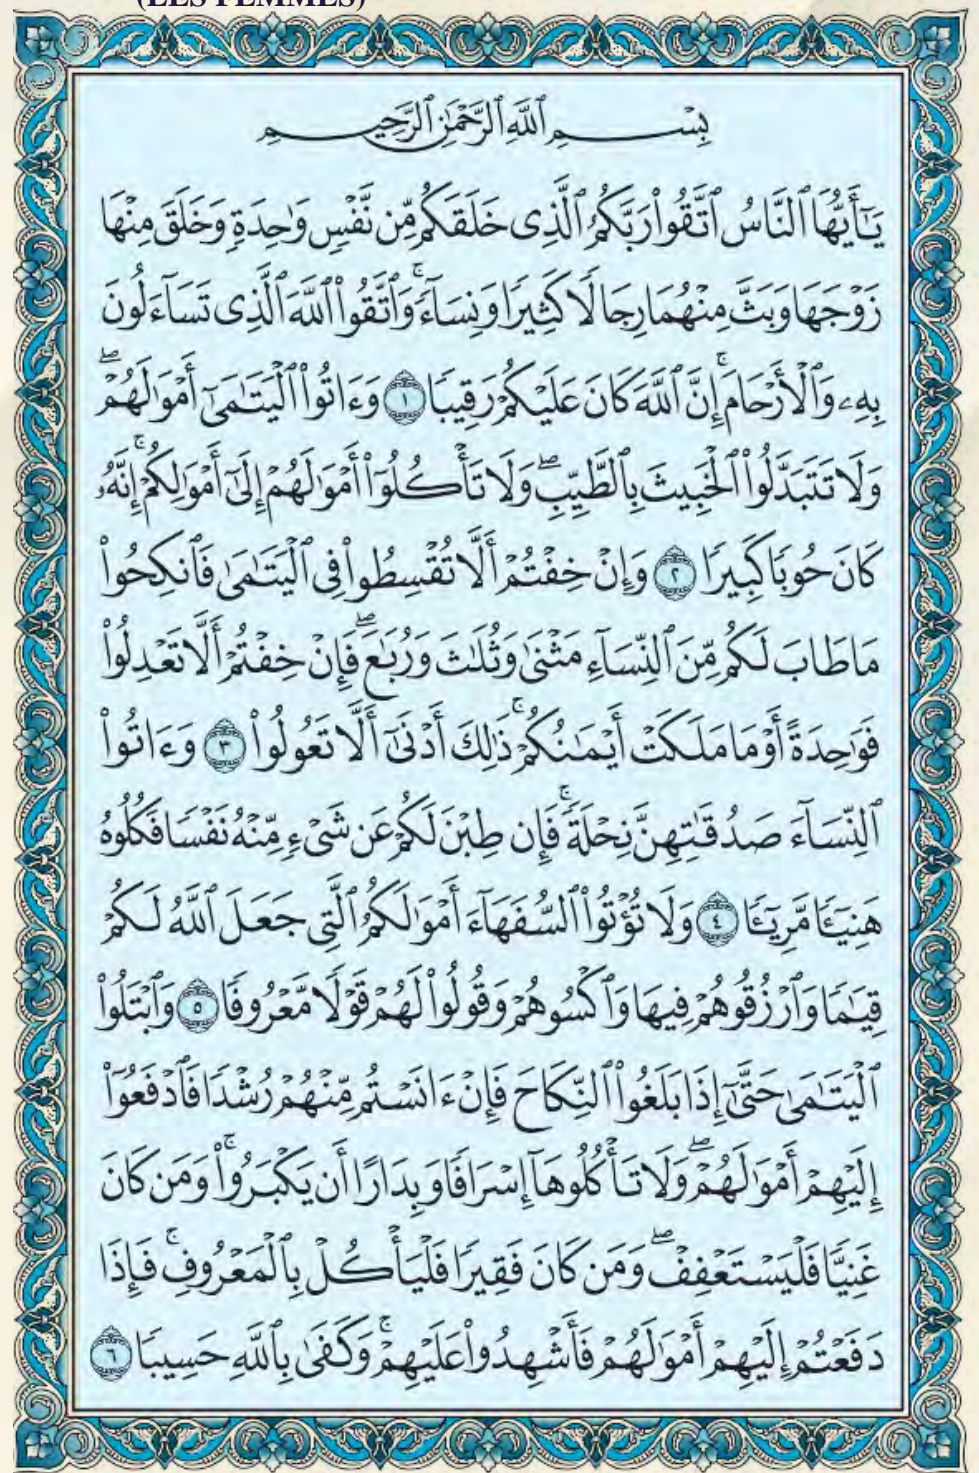 (LES FEMMES)
بِسْمِ ٱللَّهِ ٱلرَّحْمَٰنِ ٱلرَّحِيمِ
يَٰٓأَيُّهَا ٱلنَّاسُ ٱتَّقُوا۟ رَبَّكُمُ ٱلَّذِى خَلَقَكُم مِّن نَّفْسٍ وَٰحِدَةٍ وَخَلَقَ مِنْهَا
زَوْجَهَا وَبَثَّ مِنْهُمَا رِجَالًا كَثِيرًا وَنِسَآءً ۚ وَٱتَّقُوا۟ ٱللَّهَ ٱلَّذِى تَسَآءَلُونَ
بِهِۦ وَٱلْأَرْحَامَ ۚ إِنَّ ٱللَّهَ كَانَ عَلَيْكُمْ رَقِيبًا ١ وَءَاتُوا۟ ٱلْيَتَٰمَىٰٓ أَمْوَٰلَهُمْ ۖ
وَلَا تَتَبَدَّلُوا۟ ٱلْخَبِيثَ بِٱلطَّيِّبِ ۖ وَلَا تَأْكُلُوٓا۟ أَمْوَٰلَهُمْ إِلَىٰٓ أَمْوَٰلِكُمْ ۚ إِنَّهُۥ
كَانَ حُوبًا كَبِيرًا ٢ وَإِنْ خِفْتُمْ أَلَّا تُقْسِطُوا۟ فِى ٱلْيَتَٰمَىٰ فَٱنكِحُوا۟
مَا طَابَ لَكُم مِّنَ ٱلنِّسَآءِ مَثْنَىٰ وَثُلَٰثَ وَرُبَٰعَ ۖ فَإِنْ خِفْتُمْ أَلَّا تَعْدِلُوا۟
فَوَٰحِدَةً أَوْ مَا مَلَكَتْ أَيْمَٰنُكُمْ ۚ ذَٰلِكَ أَدْنَىٰٓ أَلَّا تَعُولُوا۟ ٣ وَءَاتُوا۟
ٱلنِّسَآءَ صَدُقَٰتِهِنَّ نِحْلَةً ۚ فَإِن طِبْنَ لَكُمْ عَن شَىْءٍ مِّنْهُ نَفْسًا فَكُلُوهُ
هَنِيٓـًٔا مَّرِيٓـًٔا ٤ وَلَا تُؤْتُوا۟ ٱلسُّفَهَآءَ أَمْوَٰلَكُمُ ٱلَّتِى جَعَلَ ٱللَّهُ لَكُمْ
قِيَٰمًا وَٱرْزُقُوهُمْ فِيهَا وَٱكْسُوهُمْ وَقُولُوا۟ لَهُمْ قَوْلًا مَّعْرُوفًا ٥ وَٱبْتَلُوا۟
ٱلْيَتَٰمَىٰ حَتَّىٰٓ إِذَا بَلَغُوا۟ ٱلنِّكَاحَ فَإِنْ ءَانَسْتُم مِّنْهُمْ رُشْدًا فَٱدْفَعُوٓا۟
إِلَيْهِمْ أَمْوَٰلَهُمْ ۖ وَلَا تَأْكُلُوهَآ إِسْرَافًا وَبِدَارًا أَن يَكْبَرُوا۟ ۚ وَمَن كَانَ
غَنِيًّا فَلْيَسْتَعْفِفْ ۖ وَمَن كَانَ فَقِيرًا فَلْيَأْكُلْ بِٱلْمَعْرُوفِ ۚ فَإِذَا
دَفَعْتُمْ إِلَيْهِمْ أَمْوَٰلَهُمْ فَأَشْهِدُوا۟ عَلَيْهِمْ ۚ وَكَفَىٰ بِٱللَّهِ حَسِيبًا ٦